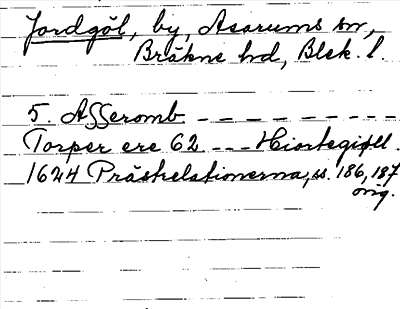 Jordgöl, by, Asarums sn,
Bräkne hd, Blek. l.
5. Asseromb — — — — — — — — —
Torper ere 62 — — — Hiortegiöll.
1624 Prästrelationerna, ss. 186, 187
orig.